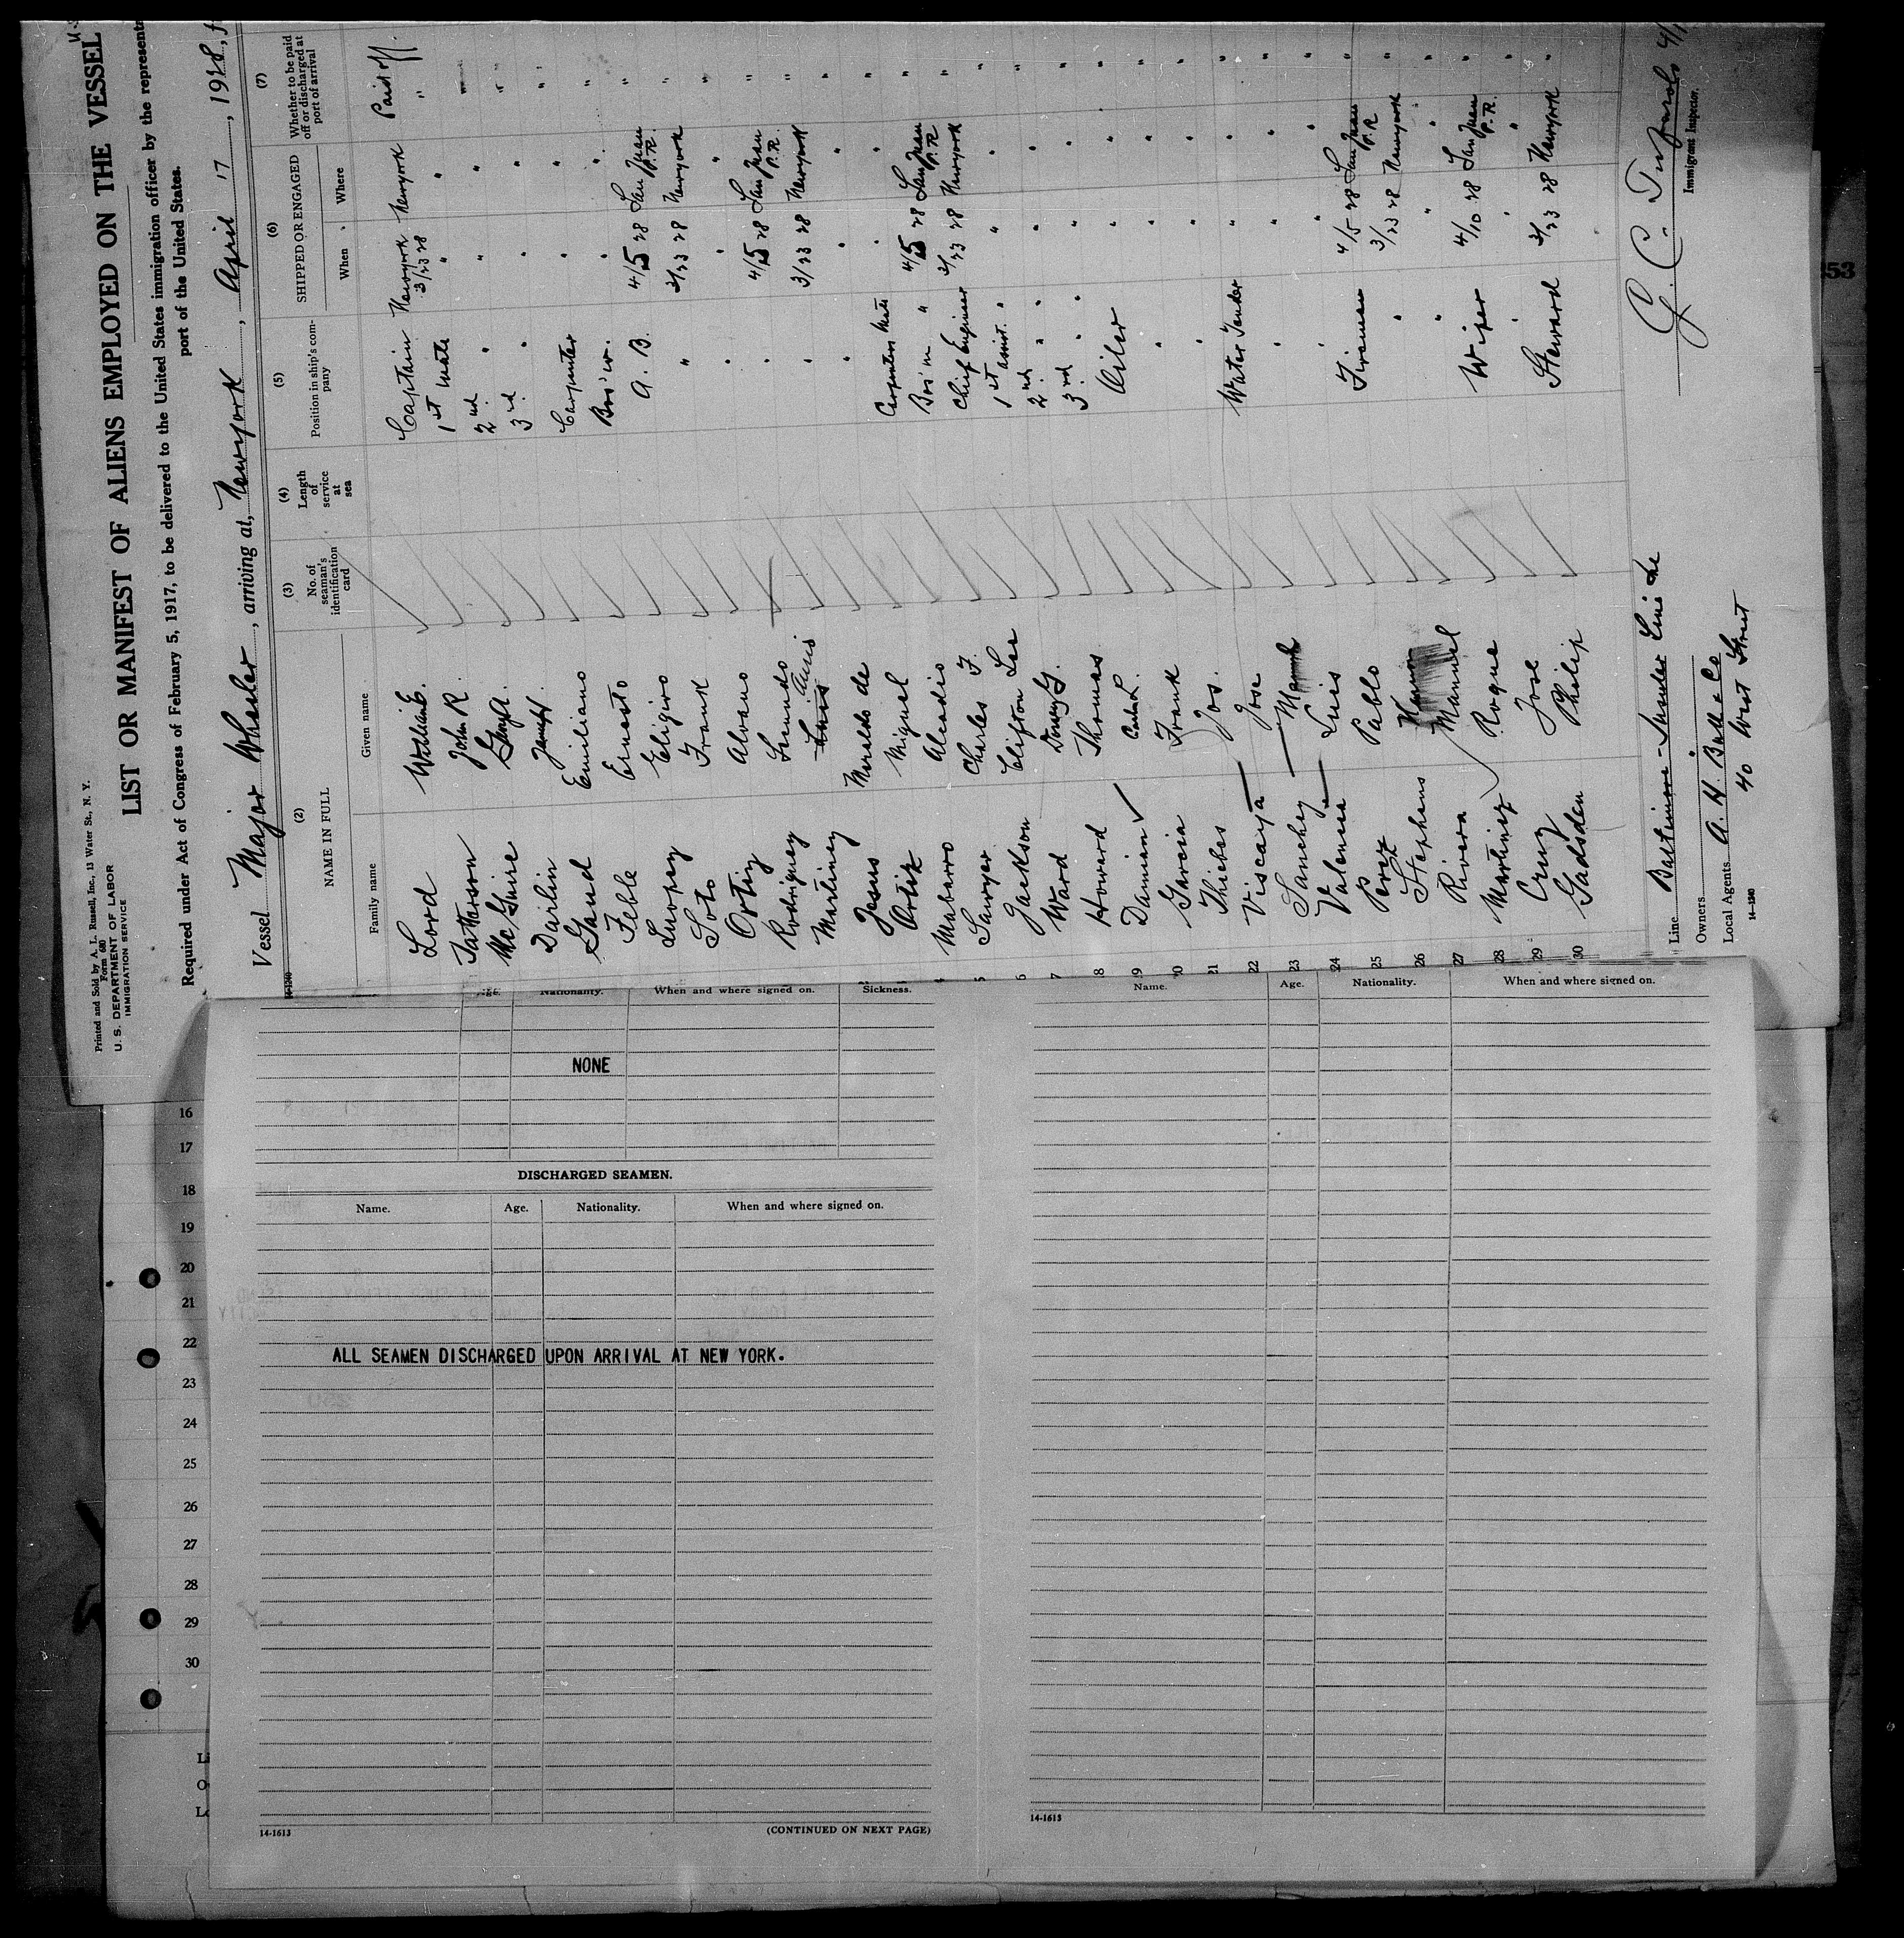 Printed and Sold by A. L. Russell, Inc., 13 Water St., N. Y.
Form 680
U. S. DEPARTMENT OF LABOR
IMMIGRATION SERVICE
LIST OR MANIFEST OF ALIENS EMPLOYED ON THE VESSEL
Required under Act of Congress of February 5, 1917, to be delivered to the United States immigration officer by the represent
port of the United States.
Vessel Major Wheeler, arriving at, Newyork, April 17, 1928, f
(2) (3) (4) (5) (6) (7)
NAME IN FULL No. of seaman's identification card Length of service at sea Position in ship's company SHIPPED OR ENGAGED Whether to be paid off or discharged at port of arrival
Family name Given name When Where
Lord William E. Captain Newyork 3/23 28 Newyork Paid off.
John R. 1st mate " " "
McGuire 2nd " " " "
Darlin 3rd " " " "
Gaud Emiliano Carpenter " " "
Feble Ernesto Bos'n. " " "
Eligiro A. B. 4/5 28 San Juan P.R. "
Soto Frank " 3/23 28 Newyork "
Ortiz Alvano " " " "
Rodriguez " 4/5 28 San Juan P.R. "
Martinez Luis " 3/23 28 Newyork "
Jesus de " " " "
Ortiz Miguel Carpenters Mate " " "
Mabarro Bos'n " 4/5 28 San Juan P.R. "
Sawyer Charles F. Chief Engineer 3/23 28 Newyork "
Jackson Clifton Lee 1st assist. " " " "
7 Ward 2nd " " " "
8 Howard Thomas 3rd " " " "
9 Damian Oiler " " "
20 Garcia Frank " " " "
21 Thiebes Jos. " " " "
22 Viscaya Jose Water Tender " " "
23 Sanchez " " " "
24 Valencia Luis " " " "
25 Perez Pablo Fireman 4/5 28 San Juan P.R. "
26 Stephens " 3/23 28 Newyork "
27 Rivera Manuel " " " "
28 Martinez Roque Wiper 4/10 28 San Juan P.R. "
29 Cruz Jose " " " "
30 Gadsden Philip Steward 3/23 28 Newyork "
Line Baltimore-Insular Line Inc
Owners "
Local Agents A. H. Bull & Co
40 West Street
14-1240
Immigrant Inspector.
Age. Nationality. When and where signed on. Sickness.
NONE
DISCHARGED SEAMEN.
Name. Age. Nationality. When and where signed on.
ALL SEAMEN DISCHARGED UPON ARRIVAL AT NEW YORK.
14-1613
(CONTINUED ON NEXT PAGE)
Name. Age. Nationality. When and where signed on.
14-1613
16
17
18
19
20
21
22
23
24
25
26
27
28
29
30
53